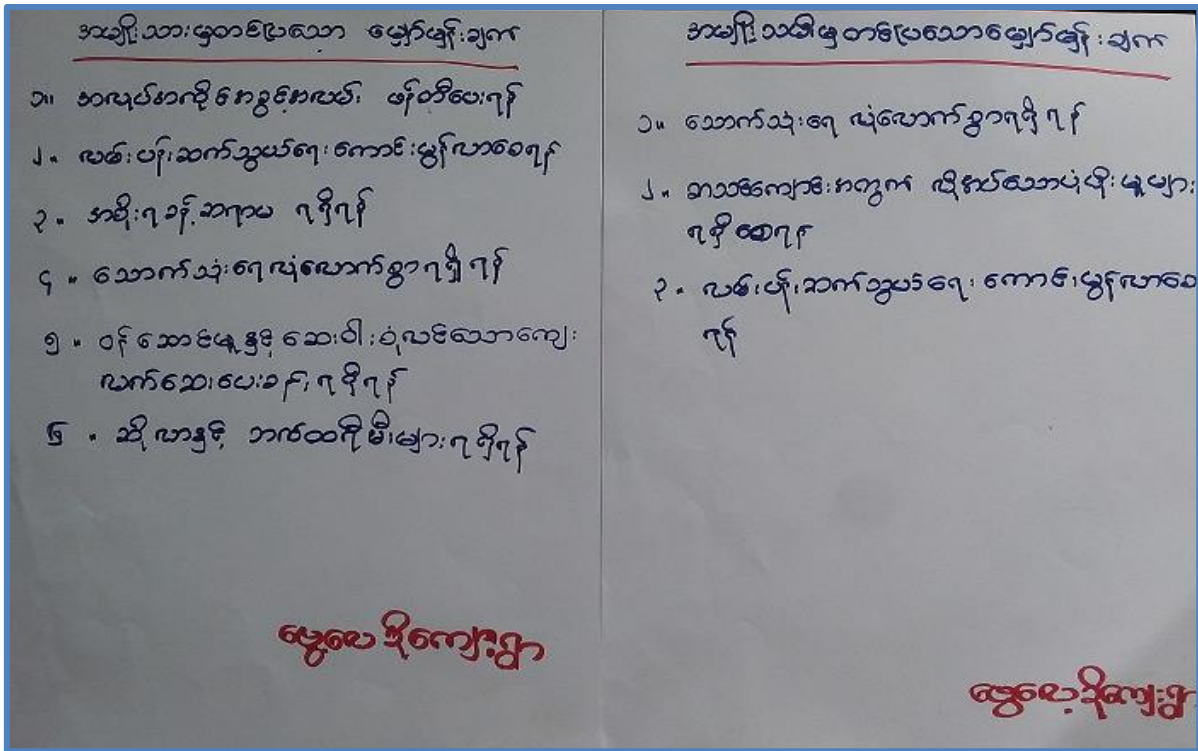 အမျိုးသားမှတင်ပြသော မျှော်မှန်းချက်
၁။ အလုပ်အကိုင်အခွင့်အလမ်း ဖန်တီးပေးရန်
၂။ လမ်းပန်းဆက်သွယ်ရေးကောင်းမွန်လာစေရန်
၃။ အစိုးရခန့်ဆရာမ ရရှိရန်
၄။ သောက်သုံးရေလုံလောက်စွာရရှိရန်
၅။ ဝန်ဆောင်မှုနှင့် ဆေးဝါးစုံလင်သောကျေး
လက်ဆေးပေးခန်းရရှိရန်
၆။ ဆိုလာနှင့် ဘက်ထရီမီးများရရှိရန်
ကျေးရွာ
အမျိုးသမီးမှတင်ပြသောမျှော်မှန်းချက်
၁။ သောက်သုံးရေ လုံလောက်စွာရရှိရန်
၂။ စာသင်ကျောင်းအတွက် လိုအပ်သောပံ့ပိုးမှုများ
ရရှိစေရန်
၃။ လမ်းပန်းဆက်သွယ်ရေး ကောင်းမွန်လာစေ
ရန်
ကျေးရွာ